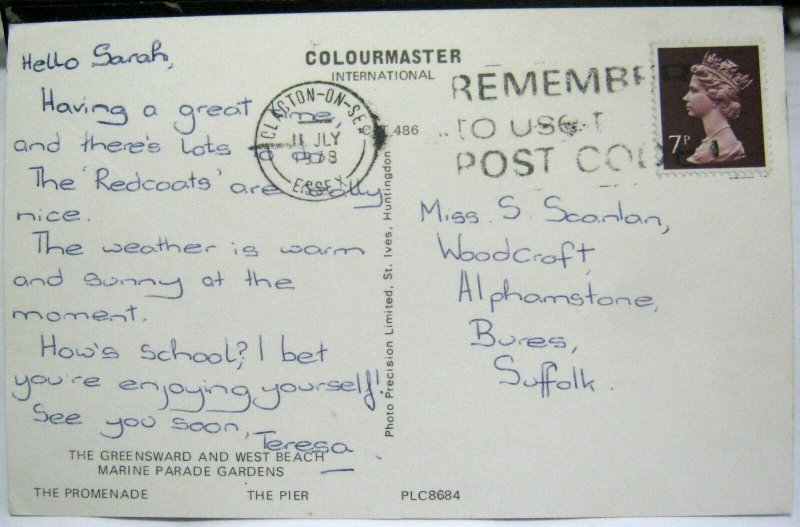 Hello Sarah,
Having a great time,
and there's lots
The 'Redcoats' are really
nice.
The weather is warm
and sunny at the
moment.
How's school? I bet
you're enjoying yourself!
See you soon,
Teresa
THE GREENSWARD AND WEST BEACH
MARINE PARADE GARDENS
THE PROMENADE
THE PIER
PLC8684
COLOURMASTER
INTERNATIONAL
486
Photo Precision Limited, St. Ives, Huntingdon
CLACTON-ON-SEA
11 JLY
1978
ESSEX
REMEMBER
TO USE
POST CODE
7P
Miss. S. Scanlan,
Woodcroft,
Alphamstone,
Bures,
Suffolk.